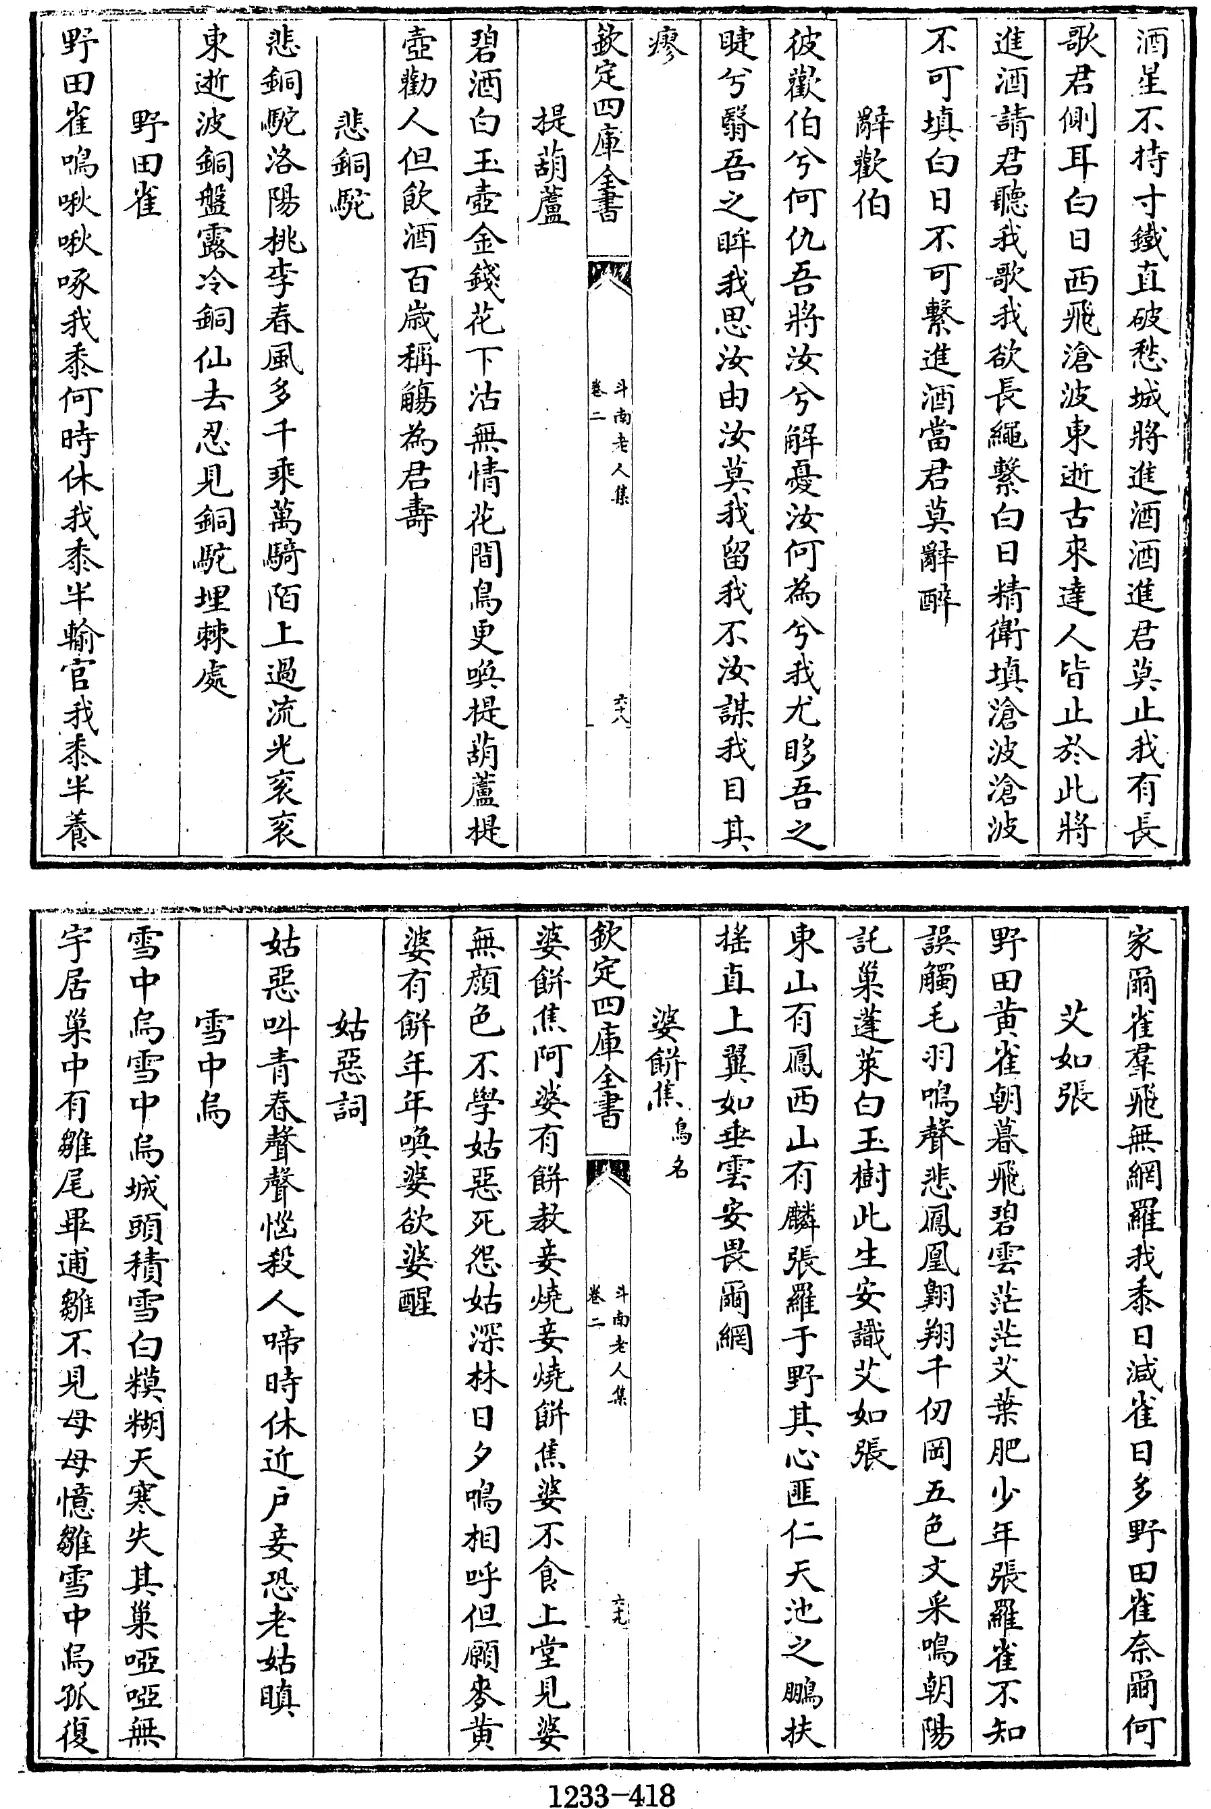 酒星不持寸鐵直破愁城將進酒酒進君莫止我有長
歌君側耳白日西飛滄波東逝古來達人皆止於此將
進酒請君聽我歌我欲長繩繫白日精衛填滄波滄波
不可填白日不可繫進酒當君莫辭醉
辭歡伯
彼歡伯兮何仇吾將汝兮解憂汝何為兮我尤眵吾之
睫兮翳吾之眸我思汝由汝莫我留我不汝謀我目其
瘳
欽定四庫全書
斗南老人集
卷二
六十八
提葫蘆
碧酒白玉壺金錢花下沽無情花間鳥更喚提葫蘆提
壺勸人但飲酒百歲稱觴為君壽
悲銅駝
悲銅駝洛陽桃李春風多千乘萬騎陌上過流光衮衮
東逝波銅盤露冷銅仙去忍見銅駝埋棘處
野田雀
野田雀鳴啾啾啄我黍何時休我黍半輸官我黍半養
家爾雀羣飛無網羅我黍日減雀日多野田雀奈爾何
艾如張
野田黄雀朝暮飛碧雲茫茫艾葉肥少年張羅雀不知
誤觸毛羽鳴聲悲鳳凰翺翔千仞岡五色文采鳴朝陽
託巢蓬萊白玉樹此生安識艾如張
東山有鳳西山有麟張羅于野其心匪仁天池之鵬扶
摇直上翼如垂雲安畏爾網
婆餅焦鳥名
欽定四庫全書
斗南老人集
卷二
六十九
婆餅焦阿婆有餅教妾燒妾燒餅焦婆不食上堂見婆
無顔色不學姑惡死怨姑深林日夕鳴相呼但願麥黄
婆有餅年年喚婆欲婆醒
姑惡詞
姑惡叫青春聲聲惱殺人啼時休近戶妾恐老姑瞋
雪中烏
雪中烏雪中烏城頭積雪白糢糊天寒失其巢啞啞無
宇居巢中有雛尾畢逋雛不見母母憶雛雪中烏孤復
1233-418